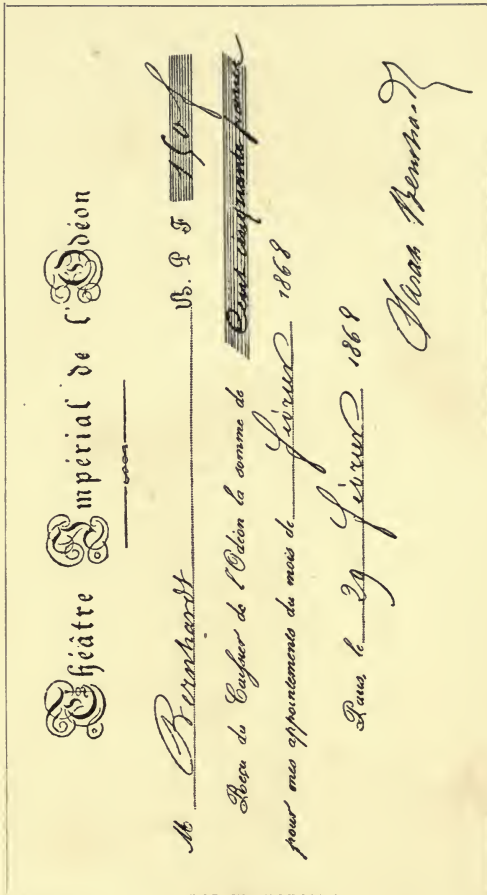 Théâtre Impérial de l'Odéon
M Bernhardt B. P. F 150 f
Reçu du Caissier de l'Odéon la somme de Cent cinquante francs
pour mes appointements du mois de Février 1868
Paris, le 29 Février 1868
Sarah Bernhardt